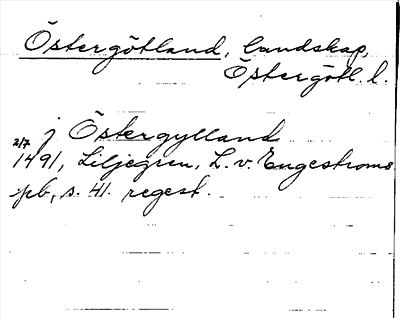 Östergötland, landskap,
Östergötl. l.
j Östergylland
2/7 1491, Liljegren, L. v. Engeströms
spb, s. 41. regest.